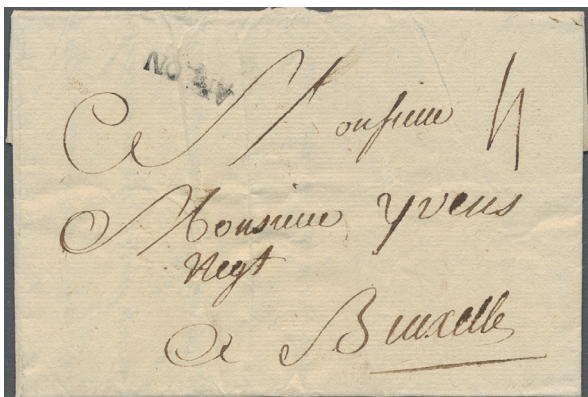 ARLON
A Monsieur 4
Monsieur Yvens
Negt
a Bruxelle